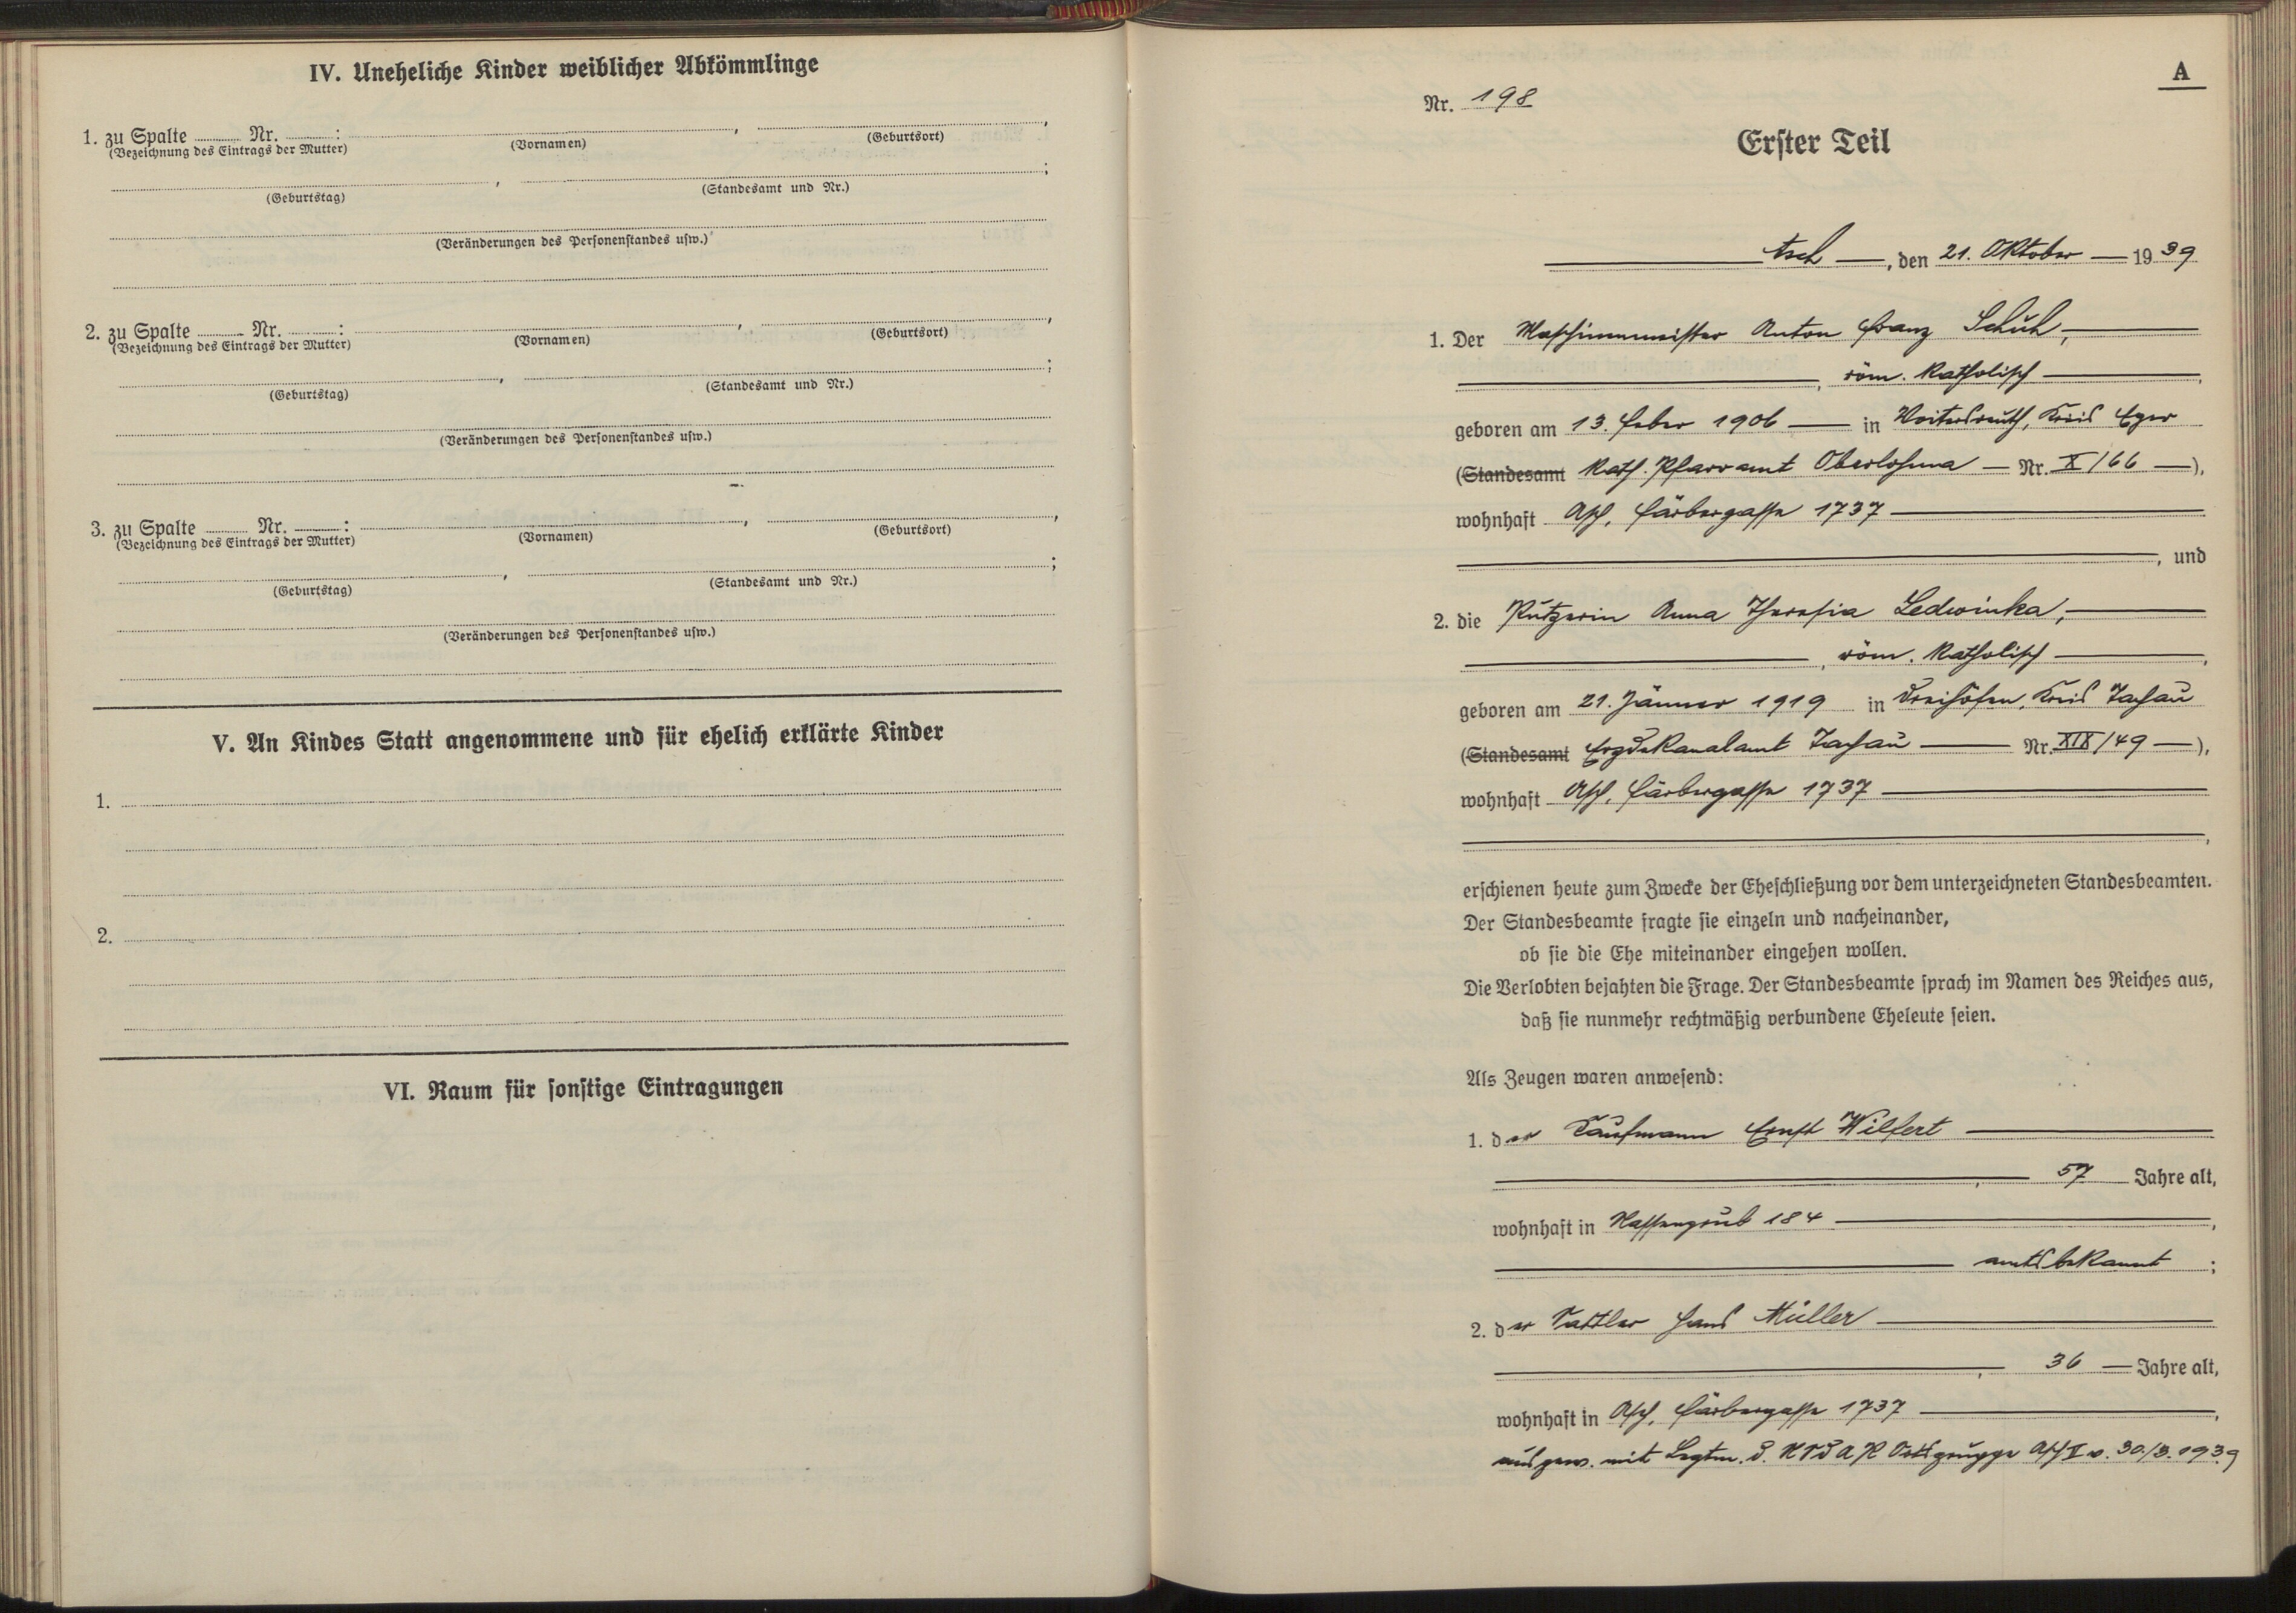 IV. Uneheliche Kinder weiblicher Abkömmlinge
1. zu Spalte Nr. :
(Bezeichnung des Eintrags der Mutter) (Vornamen) , (Geburtsort) ,
, ;
(Geburtstag) (Standesamt und Nr.)
(Veränderungen des Personenstandes usw.)
2. zu Spalte Nr. :
(Bezeichnung des Eintrags der Mutter) (Vornamen) , (Geburtsort) ,
, ;
(Geburtstag) (Standesamt und Nr.)
(Veränderungen des Personenstandes usw.)
3. zu Spalte Nr. :
(Bezeichnung des Eintrags der Mutter) (Vornamen) , (Geburtsort) ,
, ;
(Geburtstag) (Standesamt und Nr.)
(Veränderungen des Personenstandes usw.)
V. An Kindes Statt angenommene und für ehelich erklärte Kinder
1.
2.
VI. Raum für sonstige Eintragungen
A
Nr. 198
Erster Teil
Asch —, den 21. Oktober — 1939
1. Der Maschinenmeister Anton Franz Schuh,
, röm. katholisch —,
geboren am 13. Feber 1906 — in Voitersreuth, Kreis Eger
(Standesamt Kath. Pfarramt Oberlohma — Nr. X/66 —),
wohnhaft Asch, Färbergasse 1737 —
, und
2. die Putzerin Anna Theresia Ledwinka,
, röm. katholisch —,
geboren am 21. Jänner 1919 in Dreihöfen, Kreis Tachau
(Standesamt Erzdekanalamt Tachau — Nr. XIX/49 —),
wohnhaft Asch, Färbergasse 1737 —
,
erschienen heute zum Zwecke der Eheschließung vor dem unterzeichneten Standesbeamten.
Der Standesbeamte fragte sie einzeln und nacheinander,
ob sie die Ehe miteinander eingehen wollen.
Die Verlobten bejahten die Frage. Der Standesbeamte sprach im Namen des Reiches aus,
daß sie nunmehr rechtmäßig verbundene Eheleute seien.
Als Zeugen waren anwesend:
1. der Kaufmann Ernst Wilfert —
, 57 Jahre alt,
wohnhaft in Nassengrub 184 —,
amtsbekannt ;
2. der Sattler Hans Müller —
, 36 — Jahre alt,
wohnhaft in Asch, Färbergasse 1737 —,
ausgew. mit Legtm. d. NSDAP Ortsgruppe Asch II v. 30./3. 1939